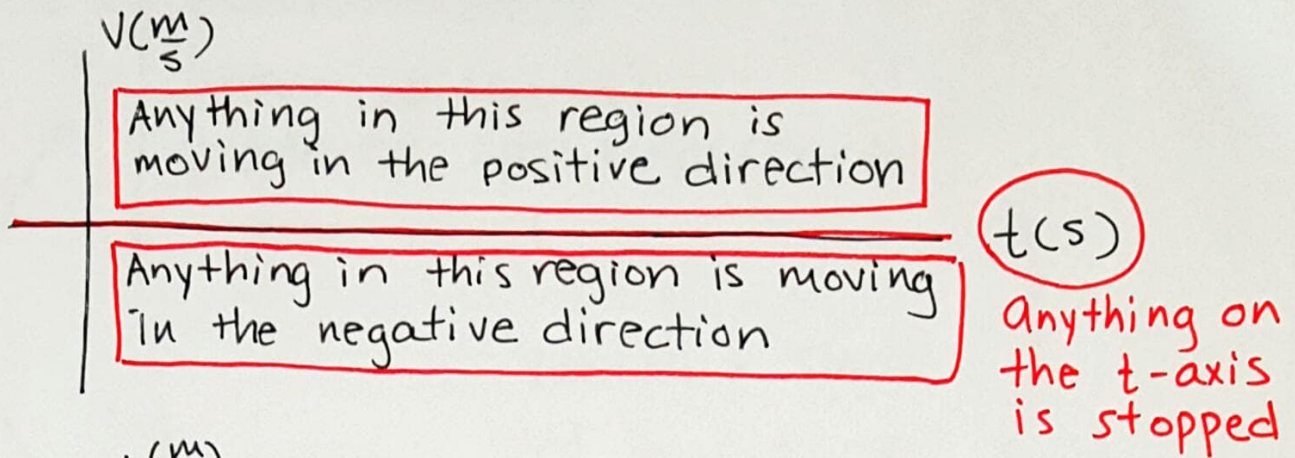 V(m/s)
Anything in this region is
moving in the positive direction
t(s)
Anything in this region is moving
in the negative direction
anything on
the t-axis
is stopped
(m)